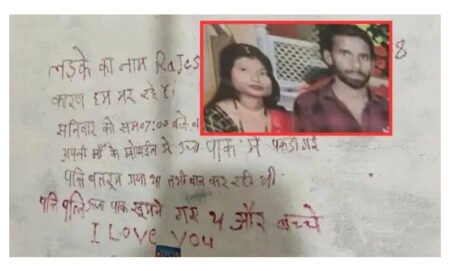 लडके का नाम RaJes 8
कारण हम मर रहे है।
सनिवार को सम07:00 बजे
अपनी माँ के में पाक में पकडी गई
पति गया था तभी बात कर रही थी
पति पत्नि पाक घुमने गए थे और बच्चे
I Love you